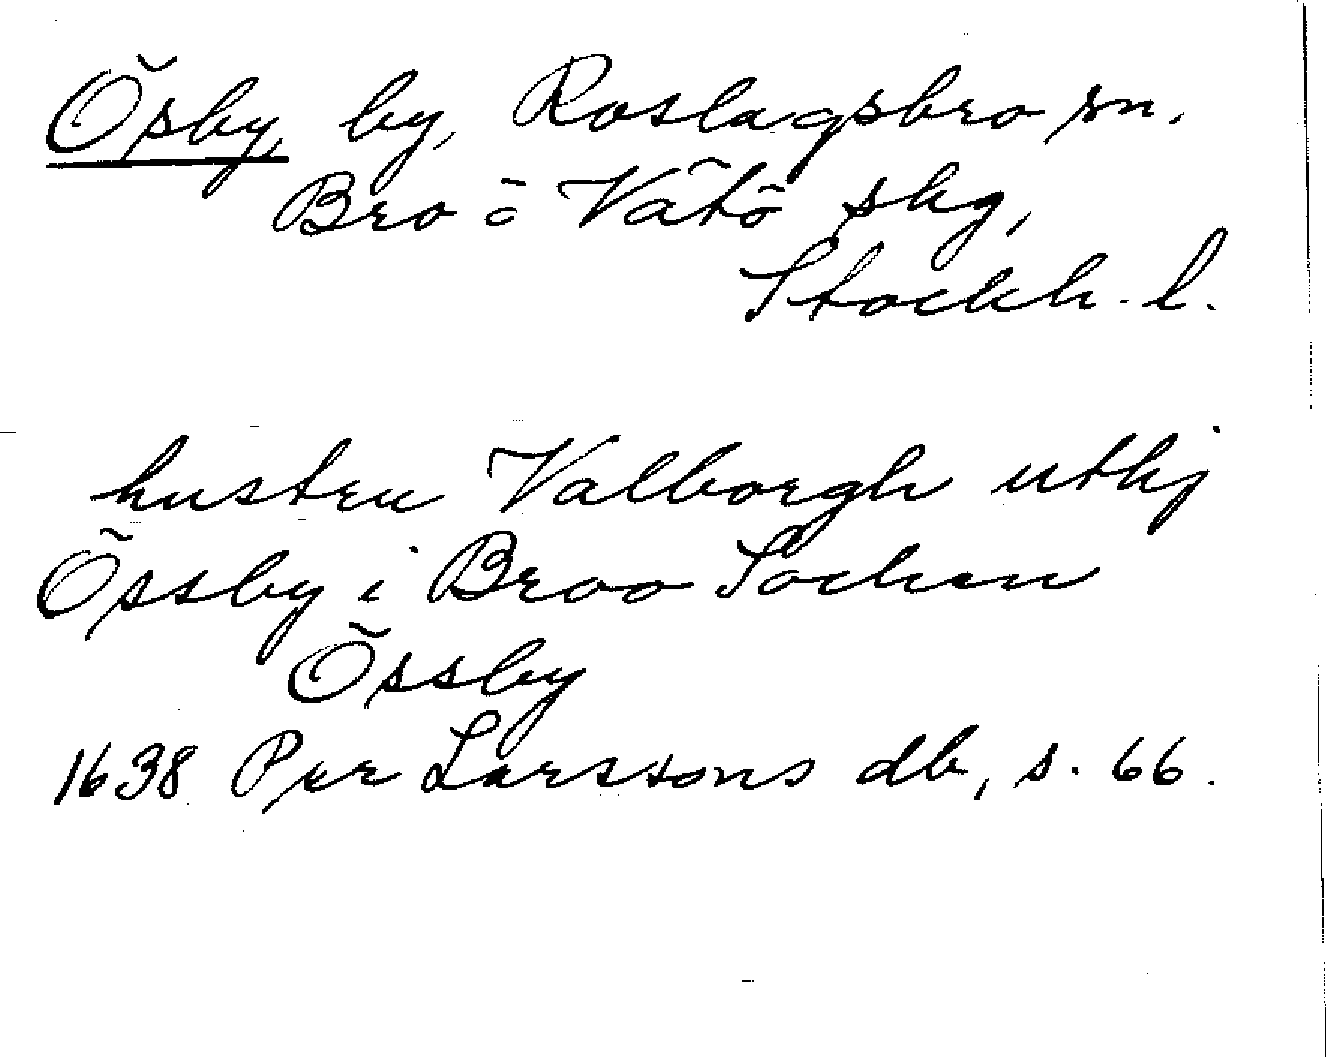 Ösby, by, Roslagsbro sn.
Bro o Vätö skg,
Stockh. l.
hustru Valborgh uthj
Össby i Broo Sochen
Össby
1638 Per Larssons db, s. 66.